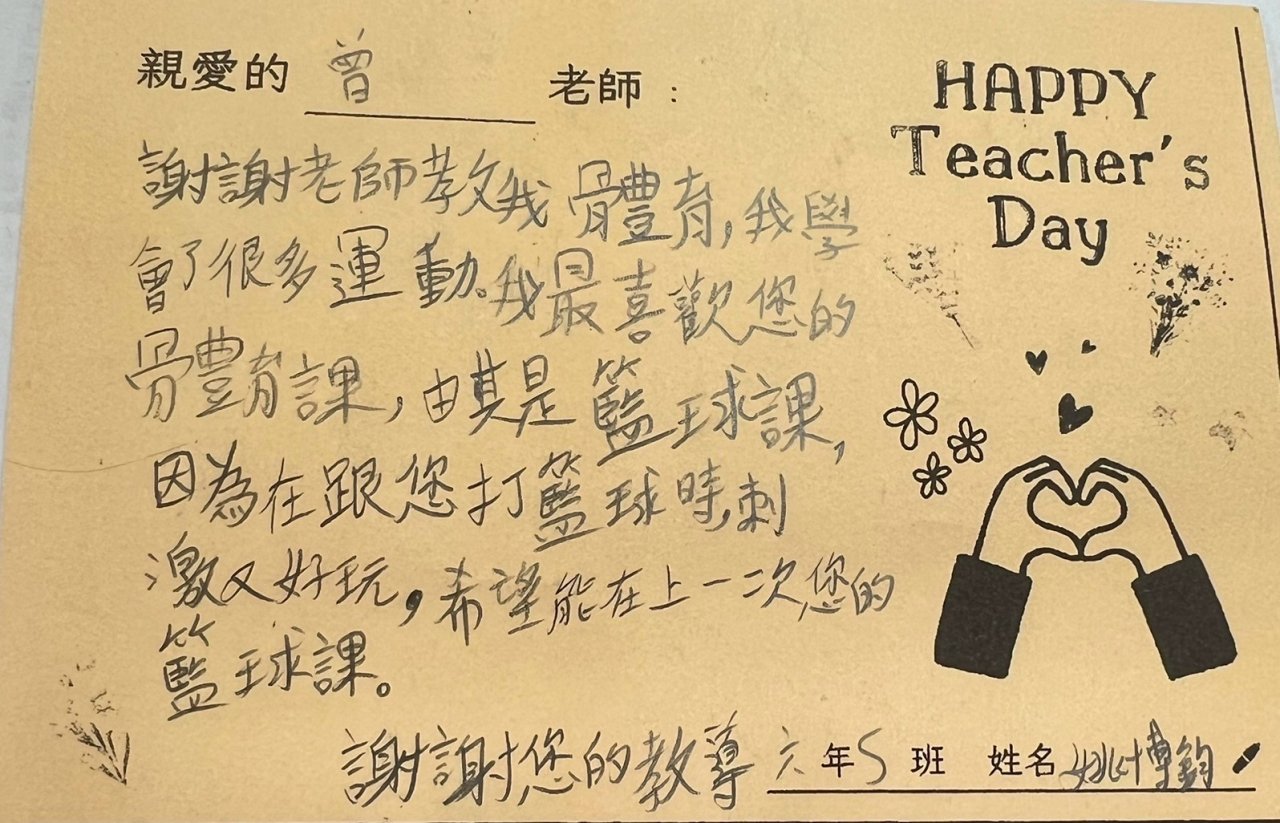 親愛的 曾 老師：
HAPPY
Teacher's
Day
謝謝老師教我體育,我學
會了很多運動。我最喜歡您的
體育課,由其是籃球課,
因為在跟您打籃球時,刺
激又好玩,希望能在上一次您的
籃球課。
謝謝您的教導
六年5班 姓名 姚博鈞